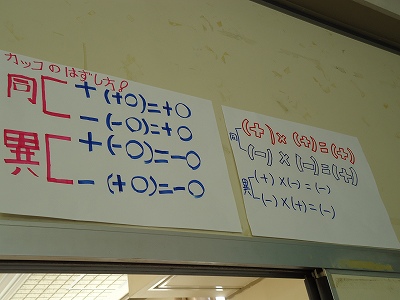 カッコのはずし方!
同 +(+○)=+○
-(-○)=+○
異 +(-○)=-○
-(+○)=-○
同 (+)×(+)=(+)
(-)×(-)=(+)
異 (+)×(-)=(-)
(-)×(+)=(-)